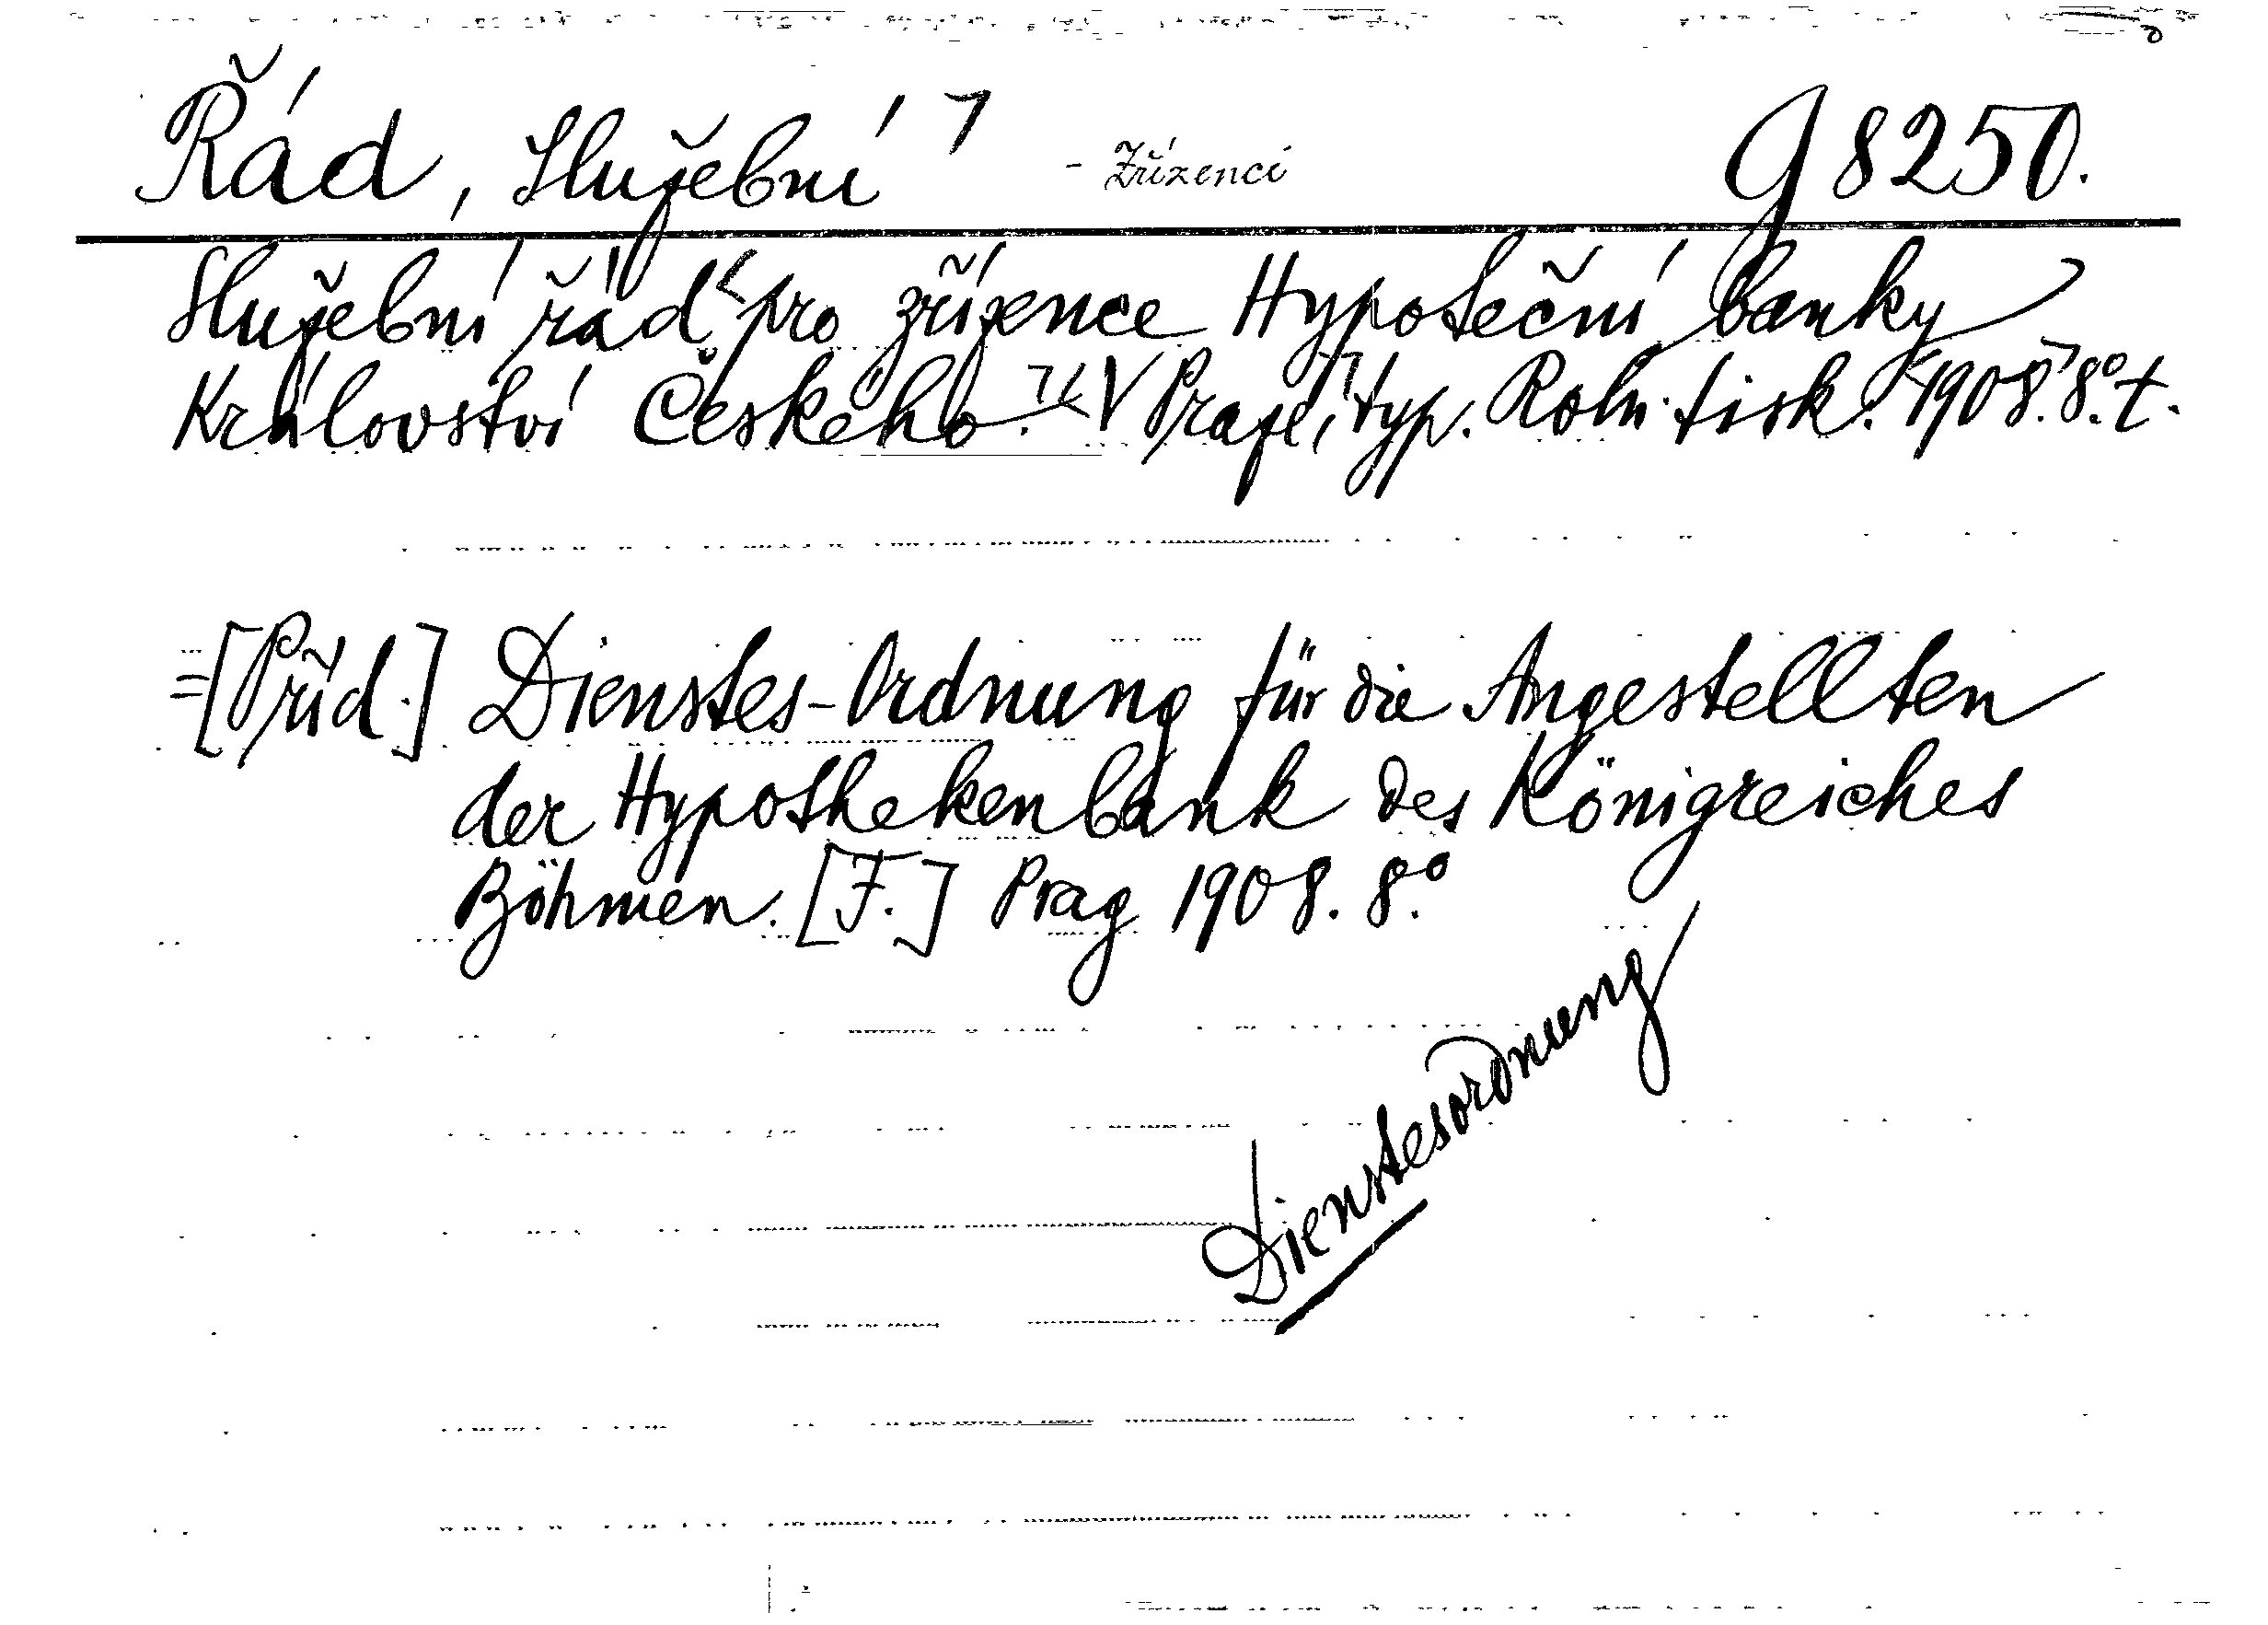 Řád, Služební - Zřízenci G 8250.
Služební řád pro zřízence Hypoteční banky
Království Českého. V Praze, typ. Roln. tisk. 1908. 8.° t.
=[Příd.] Dienstes-Ordnung für die Angestellten
der Hypothekenbank des Königreiches
Böhmen. [F.] Prag 1908. 8.°
Dienstesordnung